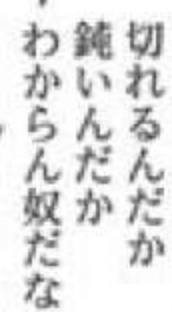 切れるんだか
鈍いんだか
わからん奴だな